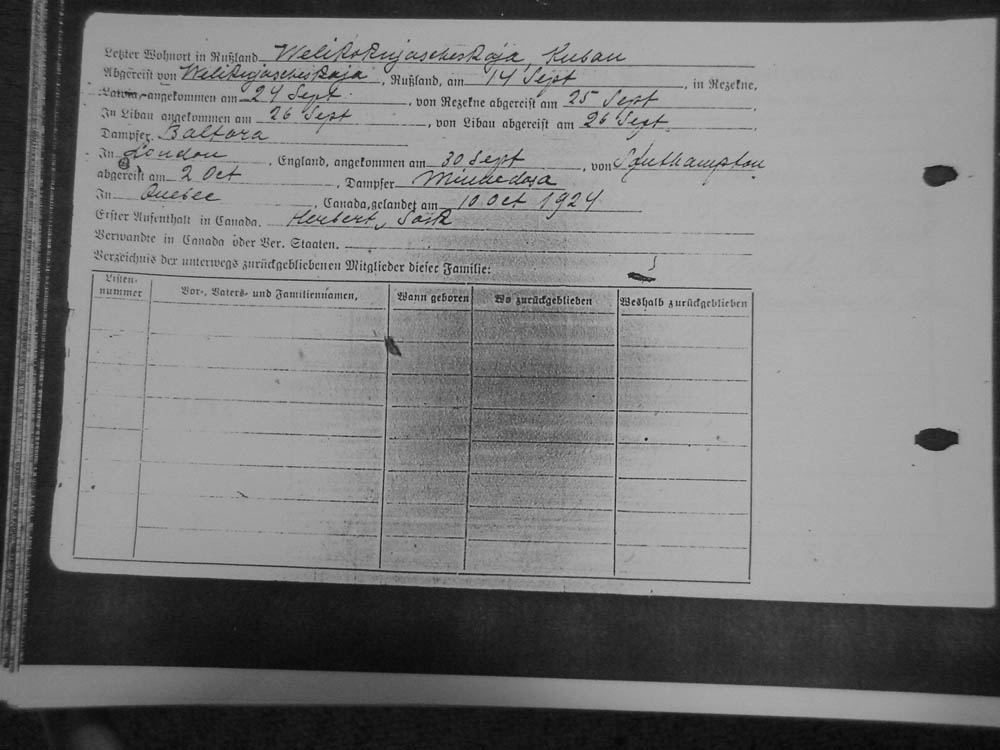 Letzter Wohnort in Rußland Welikoknjascheskaja, Kuban
Abgereist von Weliknjascheskaja, Rußland, am 14 Sept, in Rezekne,
Latvia, angekommen am 24 Sept., von Rezekne abgereist am 25 Sept
In Libau angekommen am 26 Sept, von Libau abgereist am 26 Sept.
Dampfer Baltara
In London, England, angekommen am 30 Sept, von Southampton
abgereist am 2 Oct, Dampfer Minnedosa
In Quebec, Canada, gelandet am 10 Oct 1924
Erster Aufenthalt in Canada. Herbert, Sask
Verwandte in Canada oder Ver. Staaten.
Verzeichnis der unterwegs zurückgebliebenen Mitglieder dieser Familie:
Listen-nummer Vor-, Vaters- und Familiennamen, Wann geboren Wo zurückgeblieben Weshalb zurückgeblieben